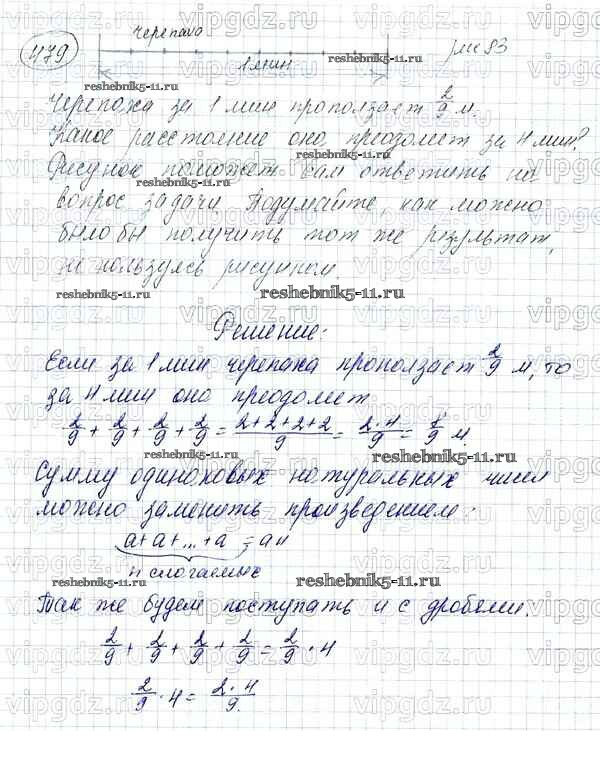 479
черепаха
рис 83
1 мин
Черепаха за 1 мин проползает 2/9 м.
Какое расстояние она преодолет за 4 мин?
Рисунок поможет вам ответить на
вопрос задачи. Подумайте, как можно
было бы получить тот же результат,
не пользуясь рисунком.
Решение:
Если за 1 мин черепаха проползает 2/9 м, то
за 4 мин она преодолет
2/9 + 2/9 + 2/9 + 2/9 = (2+2+2+2)/9 = (2·4)/9 = 8/9 м.
Сумму одинаковых натуральных чисел
можно заменить произведением:
a+a+...+a = an
n слагаемых
Так же будем поступать и с дробями.
2/9 + 2/9 + 2/9 + 2/9 = 2/9 · 4
2/9 · 4 = (2·4)/9.
vipgdz.ru
reshebnik5-11.ru